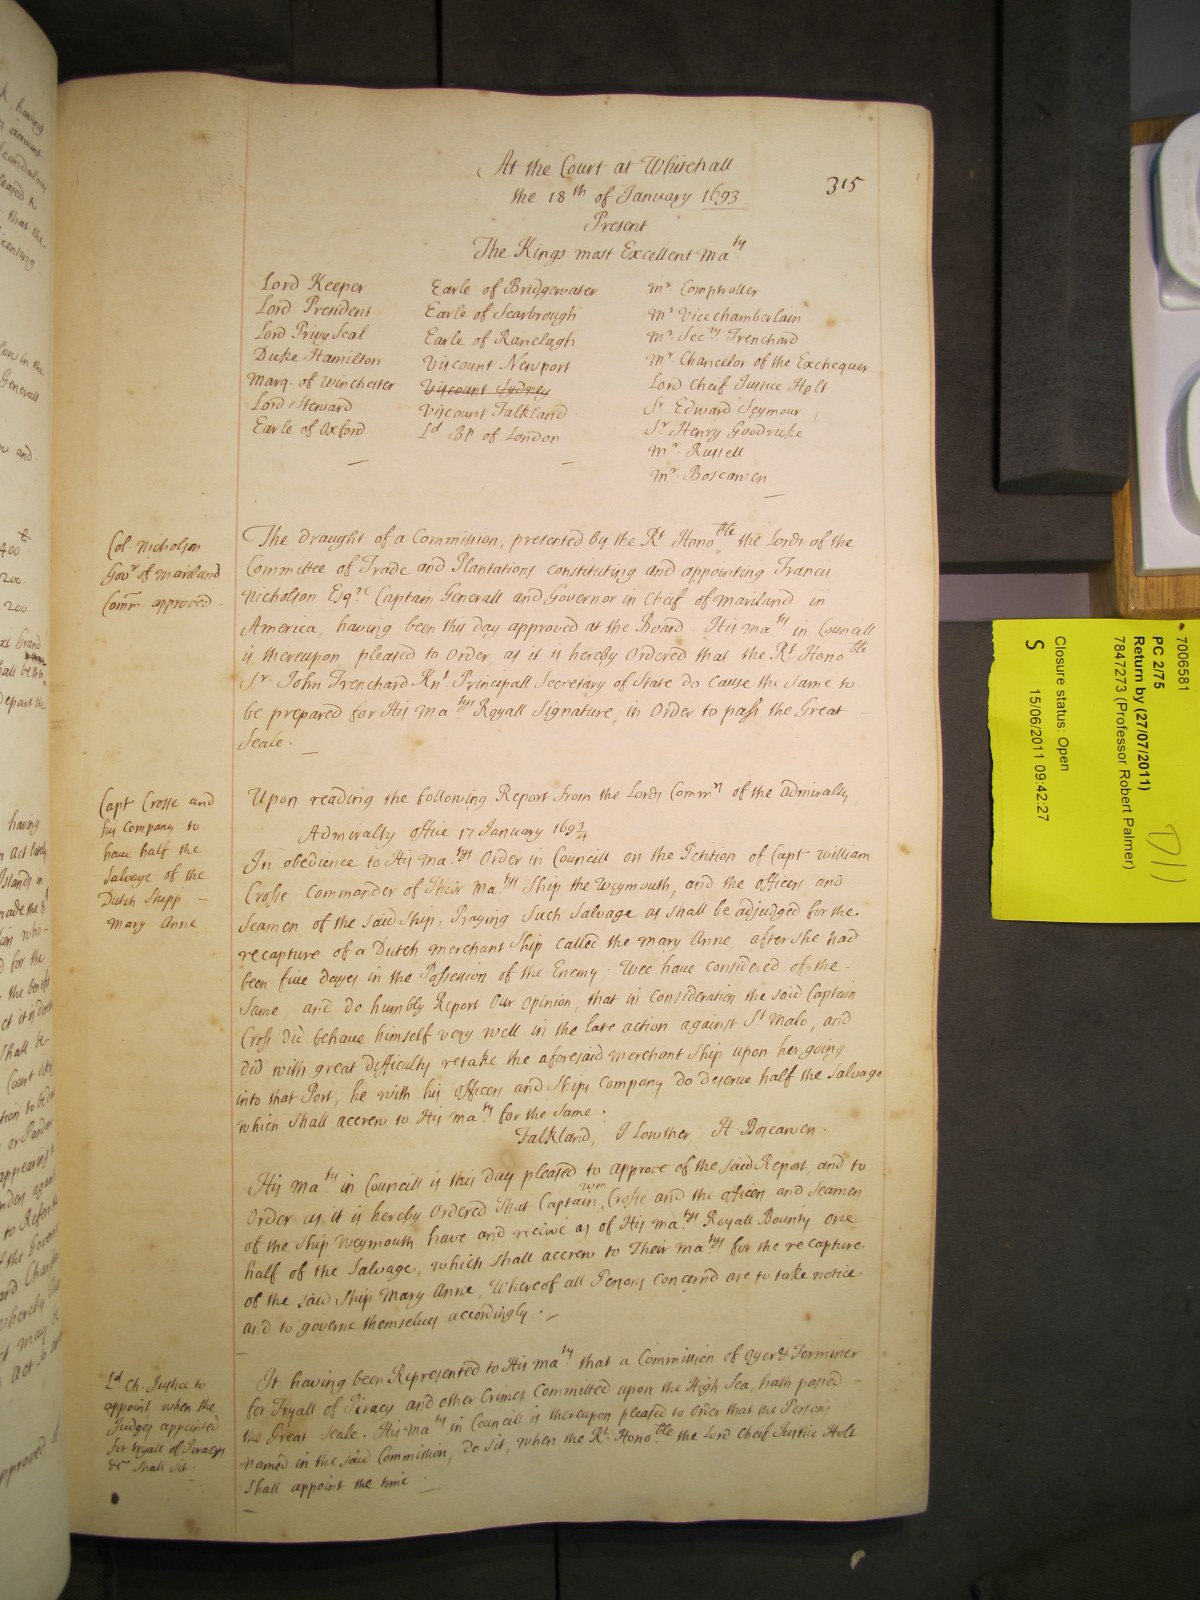 At the Court at Whitehall
315
the 18th of January 1693
Present
The Kings most Excellent Maty
Lord Keeper
Lord President
Lord Privy Seal
Duke Hamilton
Marq. of Winchester
Lord Steward
Earle of Oxford
Earle of Bridgewater
Earle of Scarbrough
Earle of Ranelagh
Viscount Newport
Viscount Sydney
Viscount Falkland
Ld Bp of London
Mr Comptroller
Mr Vicechamberlain
Mr Secry Trenchard
Mr Chancellor of the Exchequer
Lord Cheif Justice Holt
Sr Edward Seymour
Sr Henry Goodricke
Mr Russell
Mr Boscawen
Col. Nicholson
Govr of Mariland
Comm. approved
The draught of a Commission, presented by the Rt Honoble the Lords of the
Committee of Trade and Plantations constituting and appointing Francis
Nicholson Esqre Captain Generall and Governor in Cheif of Mariland in
America, having been this day approved at the Board. His Maty in Councill
is thereupon pleased to Order, as it is hereby Ordered that the Rt Honoble
Sr John Trenchard Knt Principall Secretary of State do Cause the same to
be prepared for His Matys Royall Signature, in Order to pass the Great
Seale.
Capt Crosse and
his Company to
have half the
Salvage of the
Dutch Shipp
Mary Anne
Upon reading the following Report from the Lords Commrs of the Admiralty
Admiralty office 17 January 1693/4
In obedience to His Matys Order in Councill on the Petition of Capt William
Crosse Commander of Their Matys Ship the Weymouth, and the Officers and
Seamen of the said Ship, Praying Such Salvage as shall be adjudged for the
recapture of a Dutch Merchant Ship called the Mary Anne, after she had
been five dayes in the Possession of the Enemy. Wee have considered of the
Same, and do humbly Report Our Opinion, that in Consideration the said Captain
Cross did behave himself very well in the late action against St Malo, and
did with great difficulty retake the aforesaid Merchant Ship upon her going
into that Port, he with his Officers and Ships Company do deserve half the Salvage
which shall accrew to His Maty for the Same.
Falkland, J Lowther, H. Boscawen.
His Maty in Councill is this day pleased to approve of the said Report, and to
Order as it is hereby Ordered That Captain Wm Crosse and the Officers and Seamen
of the Ship Weymouth have and receive as of His Matys Royall Bounty one
half of the Salvage, which shall accrew to Their Matys for the recapture
of the said Ship Mary Anne, Whereof all Persons concernd are to take notice
and to governe themselves accordingly.
Ld Ch. Justice to
appoint when the
Judges appointed
for tryall of Piracys
&c shall sit.
It having been Represented to His Maty that a Commission of Oyer & Terminer
for Tryall of Piracy and other Crimes Committed upon the High Sea, hath passed
the Great Seale. His Maty in Councill is thereupon pleased to Order that the Persons
named in the said Commission, Do sit, when the Rt Honoble the Lord Cheif Justice Holt
Shall appoint the time
7006581
PC 2/75
Return by (27/07/2011)
7847273 (Professor Robert Palmer)
Closure status: Open
S 15/06/2011 09:42:27